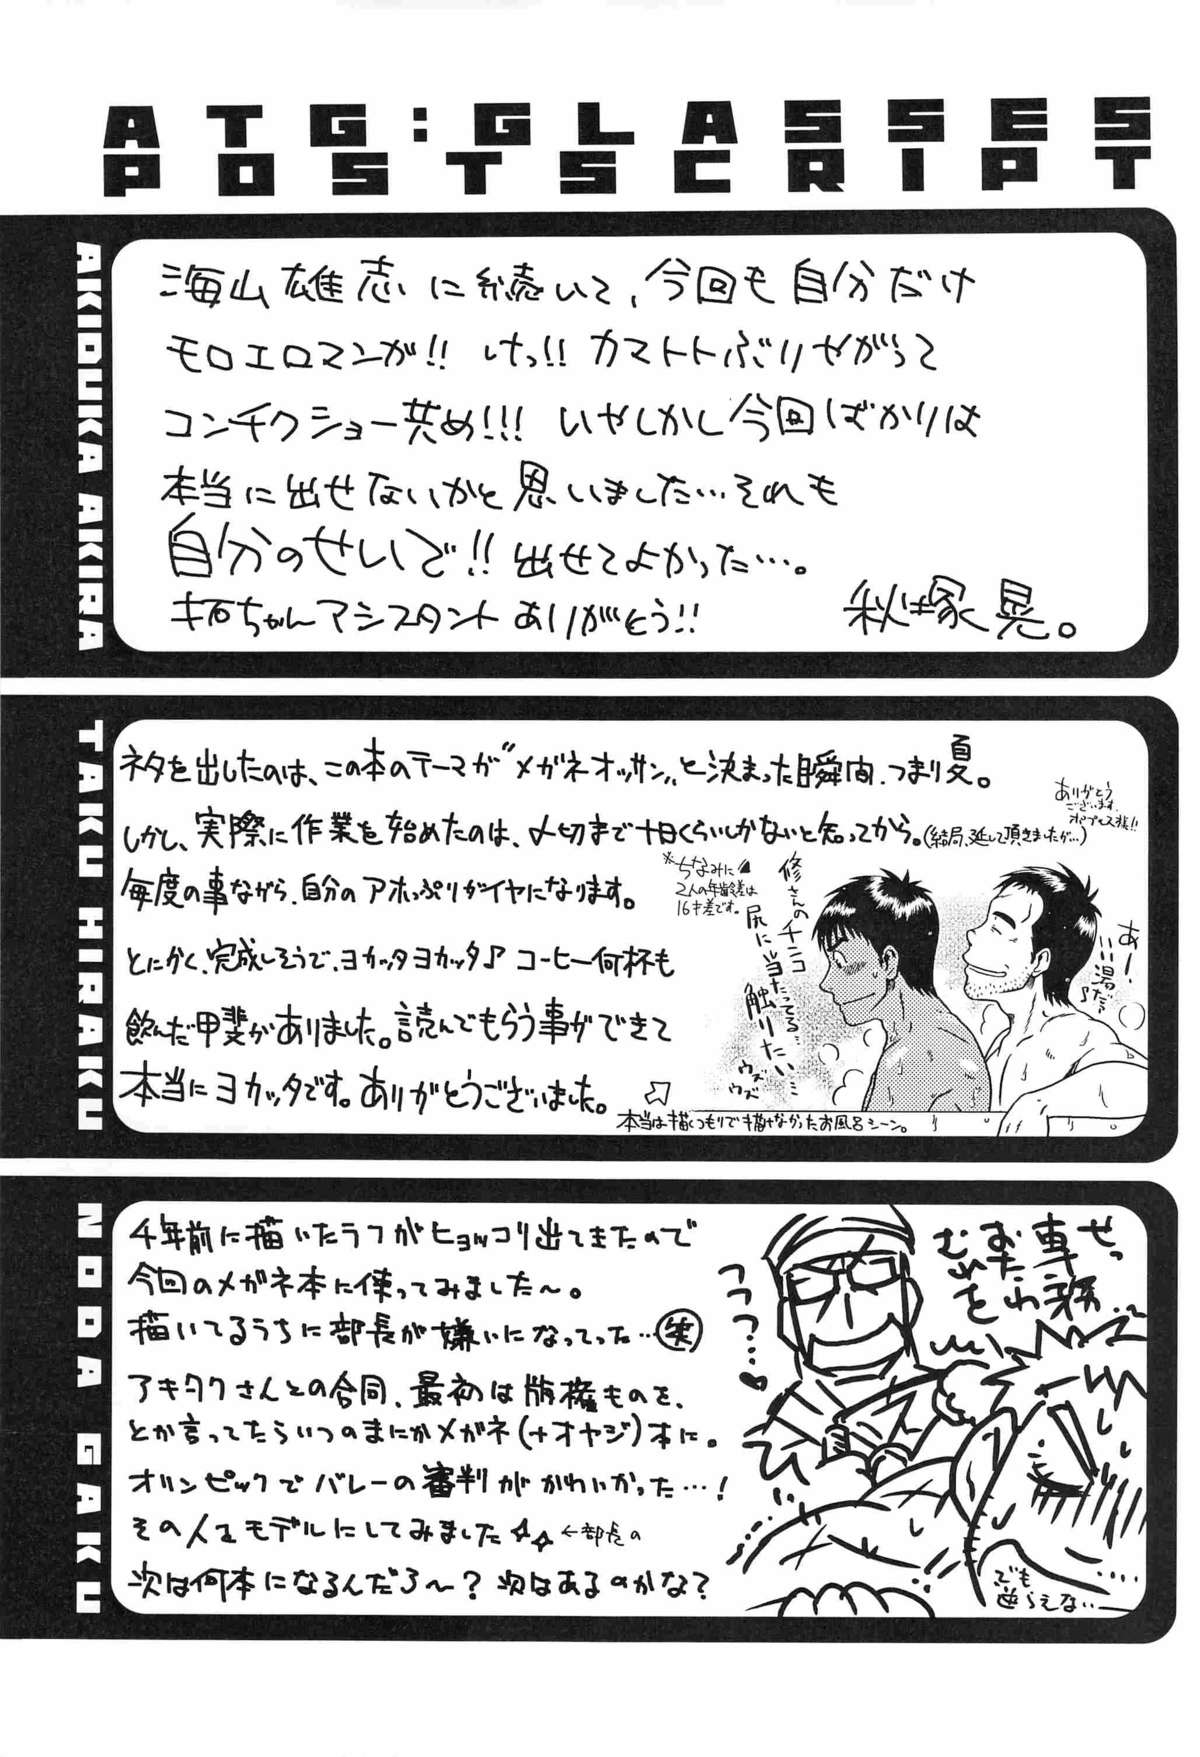 ATG:GLASSES
POSTSCRIPT
AKIDUKA AKIRA
海山雄志に続いて、今回も自分だけ
モロエロマンが!! けっ!! カマトトぶりやがって
コンチクショー共め!!! いやしかし今回ばかりは
本当に出せないかと思いました…それも
自分のせいで!! 出せてよかった…。
ちゃんアシスタントありがとう!!
秋塚晃。
TAKU HIRAKU
ネタを出したのは、この本のテーマが"メガネオッサン"と決まった瞬間、つまり夏。
しかし、実際に作業を始めたのは、〆切まで十日くらいしかないと知ってから。(結局、延して頂きましたが…)
ありがとう
ございます。
毎度の事ながら、自分のアホっぷりがイヤになります。
とにかく、完成しそうで、ヨカッタヨカッタ♪ コーヒー何杯も
飲んだ甲斐がありました。読んでもらう事ができて
本当にヨカッタです。ありがとうございました。
※ちなみに
2人の年齢差は
16才差です。
修さんのチンコ
尻に当たってる…
触りたい…
ウズ
ウズ
あー
いい湯だ〜♪
本当は描くつもりで描けなかったお風呂シーン。
NODA GAKU
4年前に描いたラフがヒョッコリ出てきたので
今回のメガネ本に使ってみました〜。
描いてるうちに部長が嫌いになってった…(笑)
アキタクさんとの合同、最初は版権ものを、
とか言ってたらいつのまにかメガネ(+オヤジ)本に。
オリンピックでバレーの審判がかわいかった…!
その人をモデルにしてみました☆☆ ←部長の
次は何本になるんだろ〜? 次はあるのかな?
フフフ…♥
せっ
専務…
おたわ
むれを
でも
逆らえない…